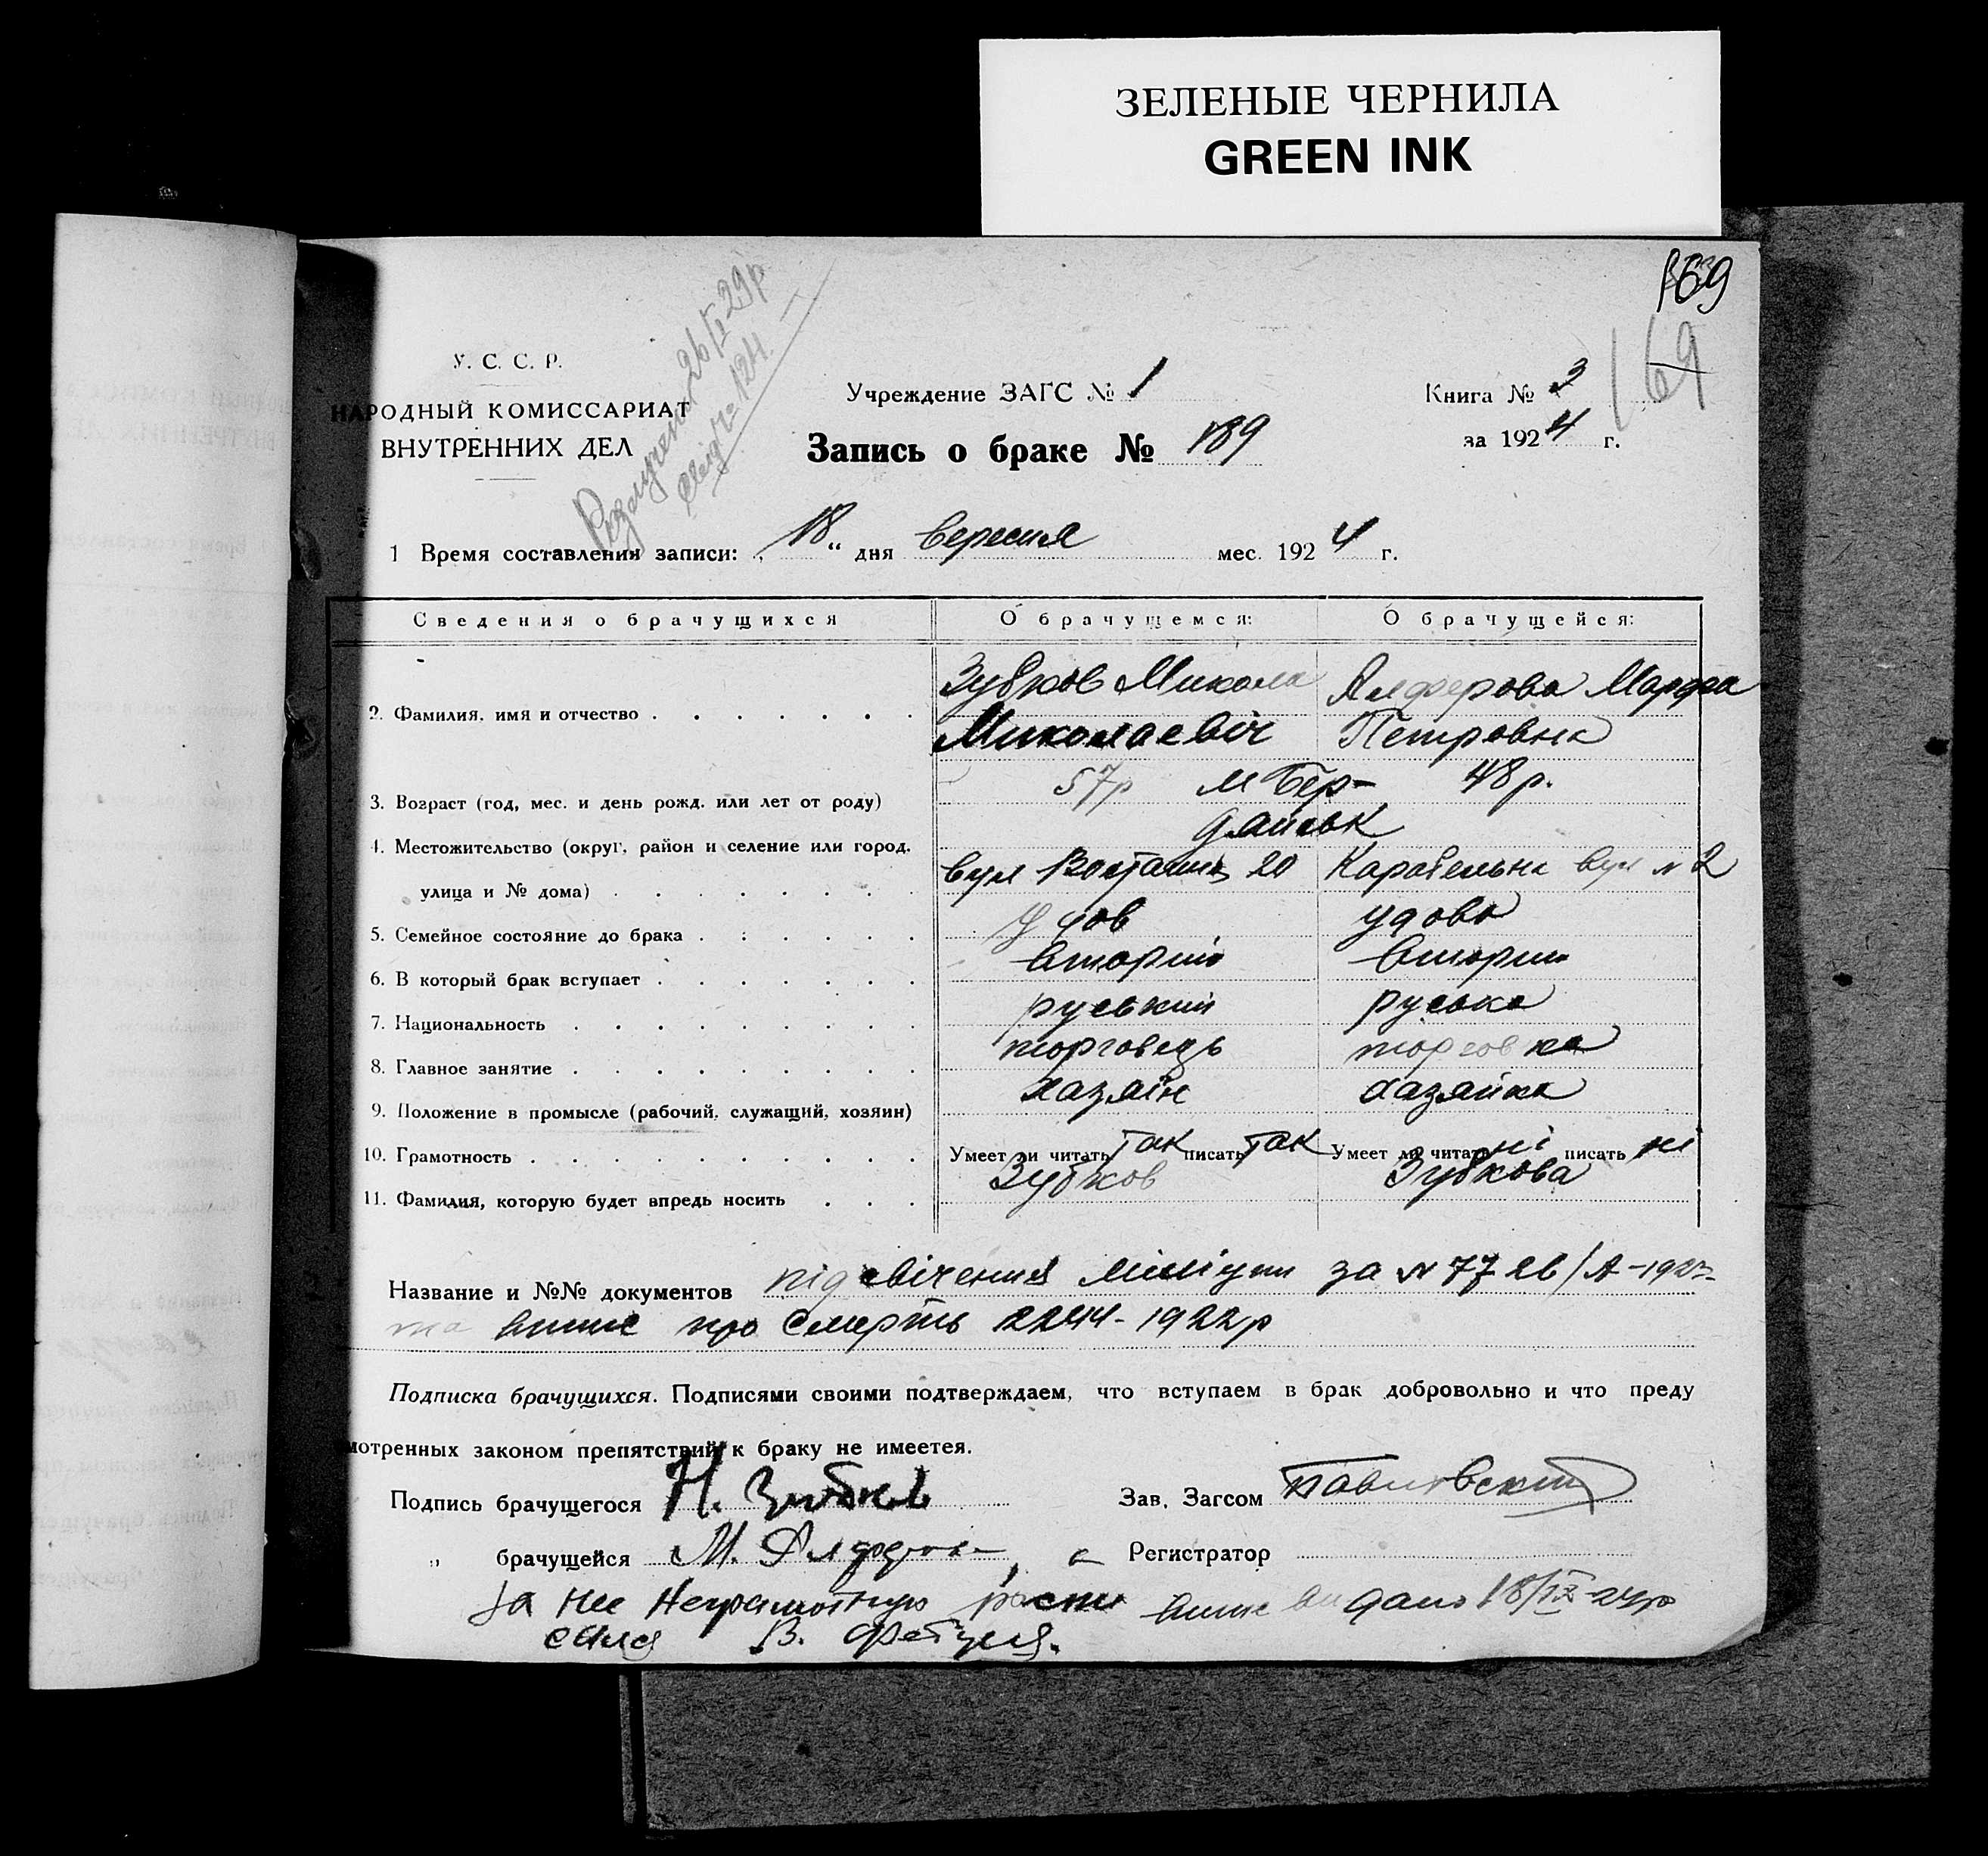 ЗЕЛЕНЫЕ ЧЕРНИЛА
GREEN INK
169
169
У. С. С. Р.
НАРОДНЫЙ КОМИССАРИАТ
ВНУТРЕННИХ ДЕЛ
Розлучені 26/ 29р
№ 124.
Учреждение ЗАГС № 1
Запись о браке № 189
Книга № 3
за 1924 г.
1 Время составления записи: „ 18 “ дня вересня мес. 1924 г.
Сведения о брачущихся О брачущемся: О брачущейся:
2. Фамилия, имя и отчество Зубков Микола Миколаевіч Алферова Марфа Петровна
3. Возраст (год, мес. и день рожд. или лет от роду) 57р 48р.
4. Местожительство (округ, район и селение или город, м Бер-
дянськ
улица и № дома) вул 20 Карабельна вул № 2
5. Семейное состояние до брака удов удова
6. В который брак вступает вторий вторий
7. Национальность руський руська
8. Главное занятие торговець торговка
9. Положение в промысле (рабочий, служащий, хозяин) хазяїн хазяйка
10. Грамотность Умеет ли читать так писать так Умеет ли читать ні писать ні
11. Фамилия, которую будет впредь носить Зубков Зубкова
Название и №№ документов підсвічення міліції за № 77
та випис про смерть 2244-1922р
Подписка брачущихся. Подписями своими подтверждаем, что вступаем в брак добровольно и что преду
мотренных законом препятствий к браку не имеется.
Подпись брачущегося Н. Зубков Зав. Загсом Павловский
„ брачущейся М. Алферова, а Регистратор
За нее неграмотную распи випис видано 18/IX-24р
салася В.